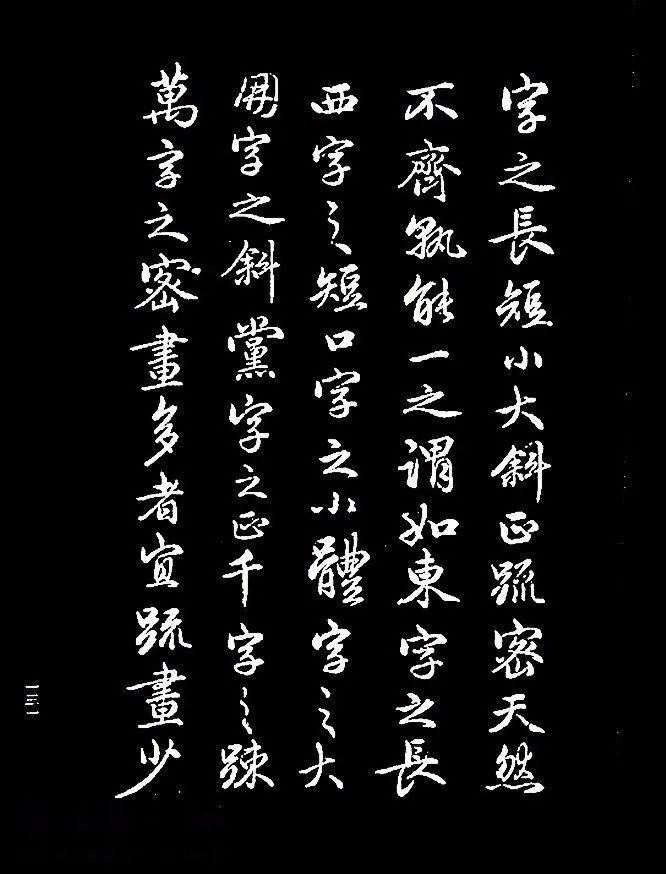 字之長短小大斜正疏密天然
不齊孰能一之謂如東字之長
西字之短口字之小體字之大
朋字之斜黨字之正千字之踈
萬字之密畫多者宜疏畫少